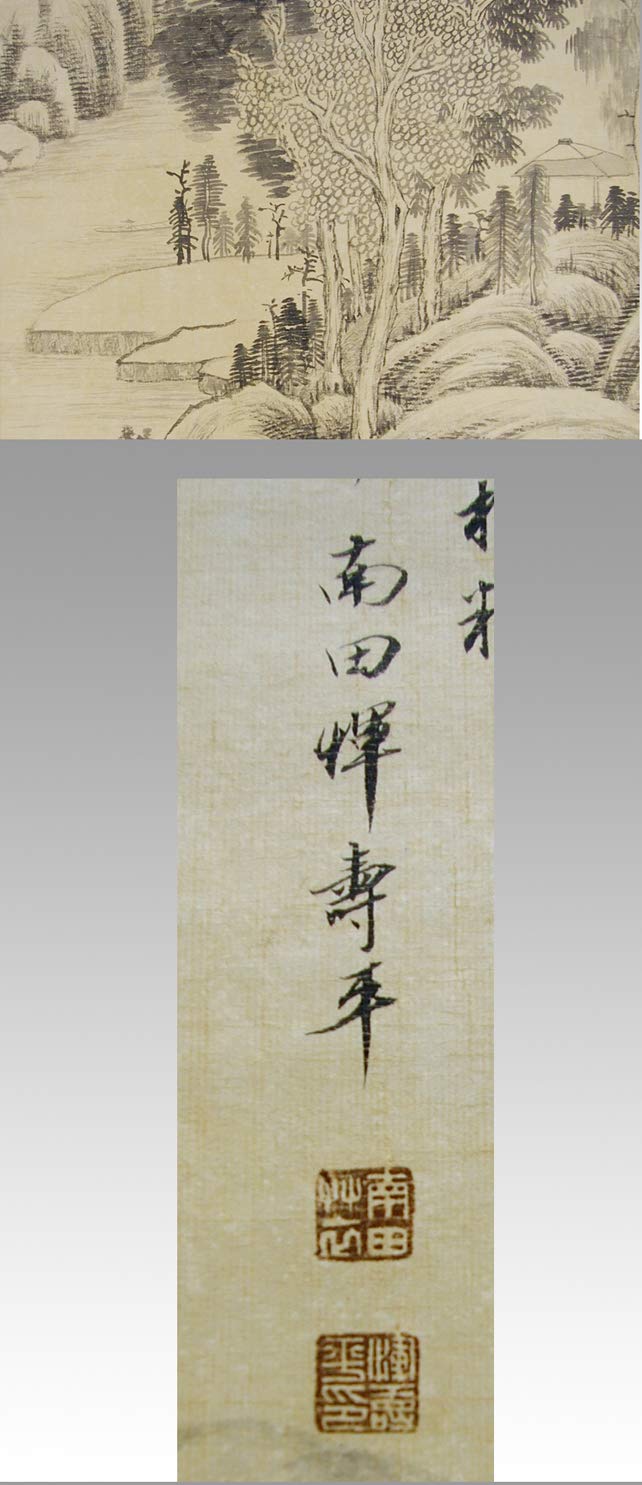 南田惲壽平
南田艸衣
惲壽平印